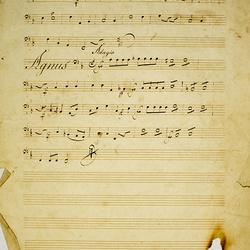 Adagio
Agnus